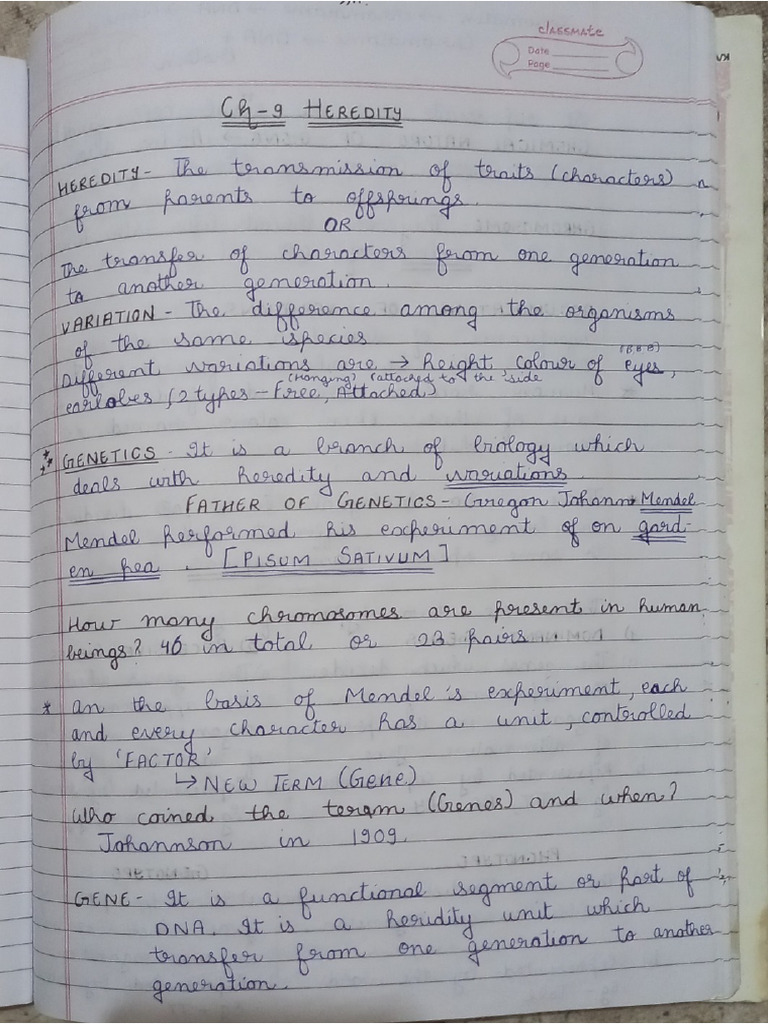 classmate
Date
Page
Ch-9 HEREDITY
HEREDITY - The transmission of traits (characters)
from parents to offsprings.
OR
The transfer of characters from one generation
to another generation.
VARIATION - The difference among the organisms
of the same species
(BBB)
Different variations are → height, colour of eyes,
(hanging) (attached to the side
earlobes (2 types - Free, Attached)
GENETICS - It is a branch of biology which
deals with heredity and variations.
FATHER OF GENETICS - Gregon Johann Mendel
Mendel performed his experiment of on gard-
en pea. [PISUM SATIVUM]
How many chromosomes are present in human
beings? 46 in total or 23 pairs.
* an the basis of Mendel's experiment, each
and every character has a unit, controlled
by 'FACTOR'
↳ NEW TERM (Gene)
Who coined the teram (Genes) and when?
Johannson in 1909.
GENE - It is a functional segment or part of
DNA. It is a heridity unit which
transfer from one generation to another
generation.